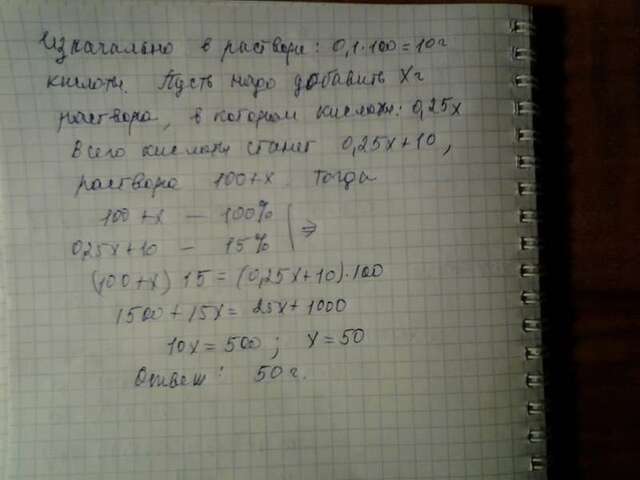 Изначально в растворе: 0,1·100=10г
кислоты. Пусть надо добавить Xг
раствора, в котором кислоты: 0,25x
Всего кислоты станет 0,25x+10,
раствора 100+x. Тогда
100+x — 100%
0,25x+10 — 15% ⇒
(100+x) 15 = (0,25x+10)·100
1500+15x = 25x+1000
10x = 500; x=50
Ответ: 50 г.